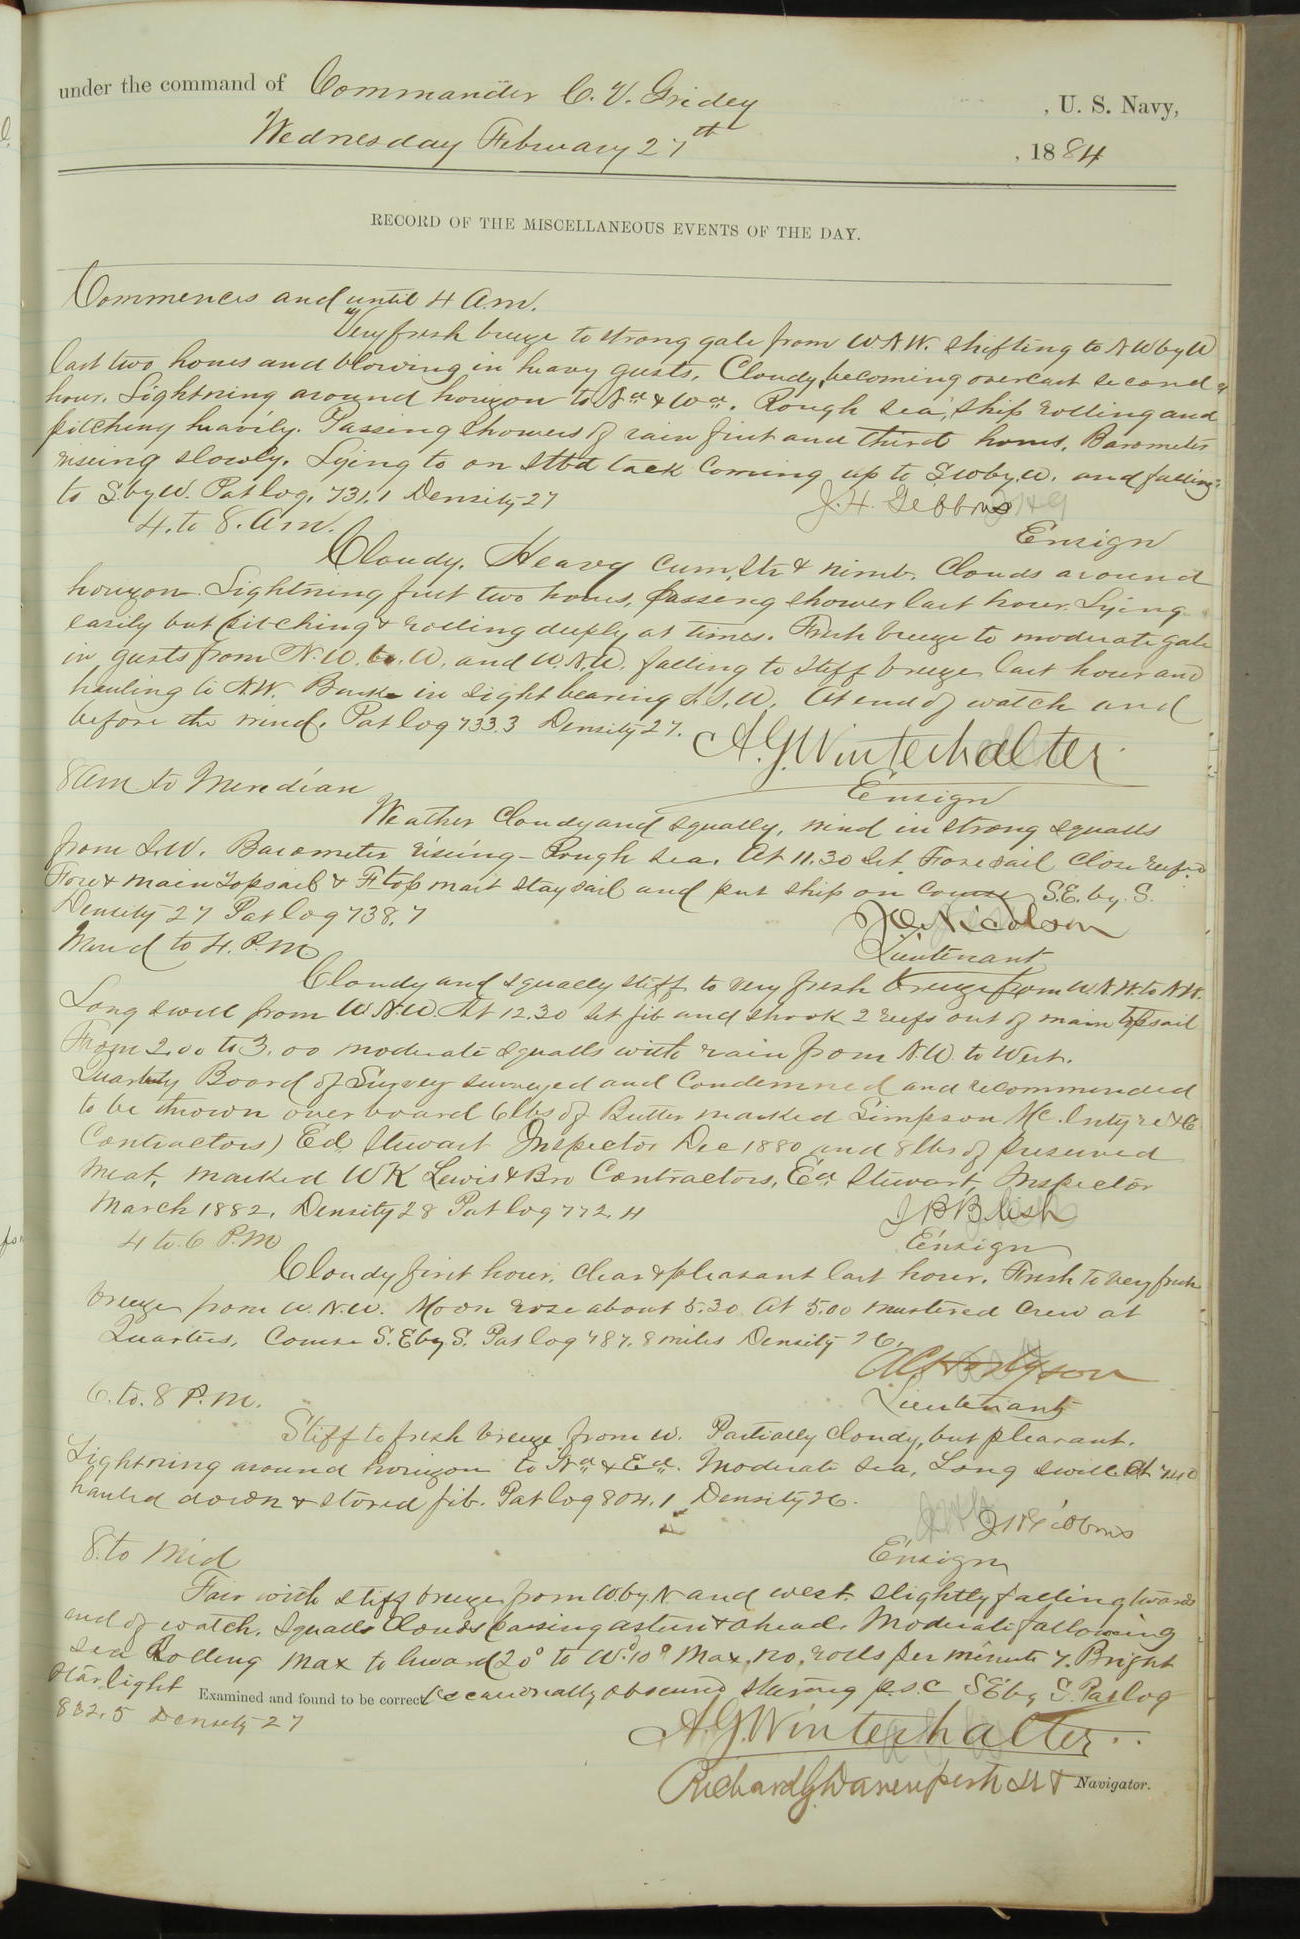 under the command of Commander C. V. Gridley, U. S. Navy,
Wednesday February 27th, 1884
RECORD OF THE MISCELLANEOUS EVENTS OF THE DAY.
Commences and until 4 A.m.
Very fresh breeze to strong gale from W.N.W. shifting to N.W by W
last two hours and blowing in heavy gusts. Cloudy, becoming overcast second
hour. Lightning around horizon to Nd & Wd. Rough sea, ship rolling and
pitching heavily. Passing showers of rain first and third hours. Barometer
rising slowly. Lying to on Stbd tack Coming up to S.W by. W. and falling
to S. by W. Pat log. 731.1 Density 27
J. H. Gibbons
Ensign
4. to 8. Am.
Cloudy. Heavy Cum. Str & nimb. Clouds around
horizon. Lightning first two hours, passing shower last hour. Lying
easily but pitching & rolling deeply at times. Fresh breeze to moderate gale
in gusts from N. W. by. W. and W.N.W. falling to stiff breeze last hour and
hauling to N.W. Bark in sight bearing S.S.W. At end of watch and
before the wind. Pat log 733.3 Density 27.
A. G. Winterhalter
Ensign
8 Am to Meridian
Weather Cloudy and squally, wind in strong squalls
from S.W. Barometer rising - Rough sea. At 11.30 Set Foresail Close reefed
Fore & main Topsails & F. topmast staysail and put ship on course S.E. by. S.
Density 27 Pat log 738.7
Nicolson
Lieutenant
Merid to 4. P.M
Cloudy and squally stiff to very fresh breeze from W.N.W. to N.W.
Long swell from W.N.W. At 12.30 set jib and shook 2 reefs out of main topsail
From 2.00 to 3.00 moderate squalls with rain from N.W. to West.
Quarterly Board of Survey surveyed and Condemned and recommended
to be thrown overboard 6 lbs of Butter marked Simpson Mc. Intyre & Co
Contractors) Ed Stewart Inspector Dec 1880 and 8 lbs of preserved
Meat, marked W K Lewis & Bro Contractors, Ed Stewart, Inspector
March 1882. Density 28 Pat log 772.4
J B Blish
Ensign
4 to 6 P.M
Cloudy first hour, clear & pleasant last hour. Fresh to very fresh
breeze from W.N.W. Moon rose about 5.30. At 5.00 mustered Crew at
Quarters. Course S.E by S. Pat log 787.8 miles Density 26.
Hodgson
Lieutenant
6. to. 8 P.M.
Stiff to fresh breeze from W. Partially Cloudy, but pleasant.
Lightning around horizon to Nd & Ed. Moderate sea, Long swell. At 7.40
hauled down & stowed jib. Pat log 804.1 Density 26.
J H Gibbons
Ensign
8. to Mid
Fair with stiff breeze from W. by N and west. Slightly falling towards
end of watch. Squall Clouds passing astern & ahead. Moderate following
sea Rolling Max to leeward 20° to W. 10° Max. no. rolls per minute 7. Bright
Starlight occasionally obscured Steering p.s.c S.E by S. Pat log
832.5 Density 27
Examined and found to be correct.
A. G. Winterhalter
Richard G Davenport Lt Navigator.